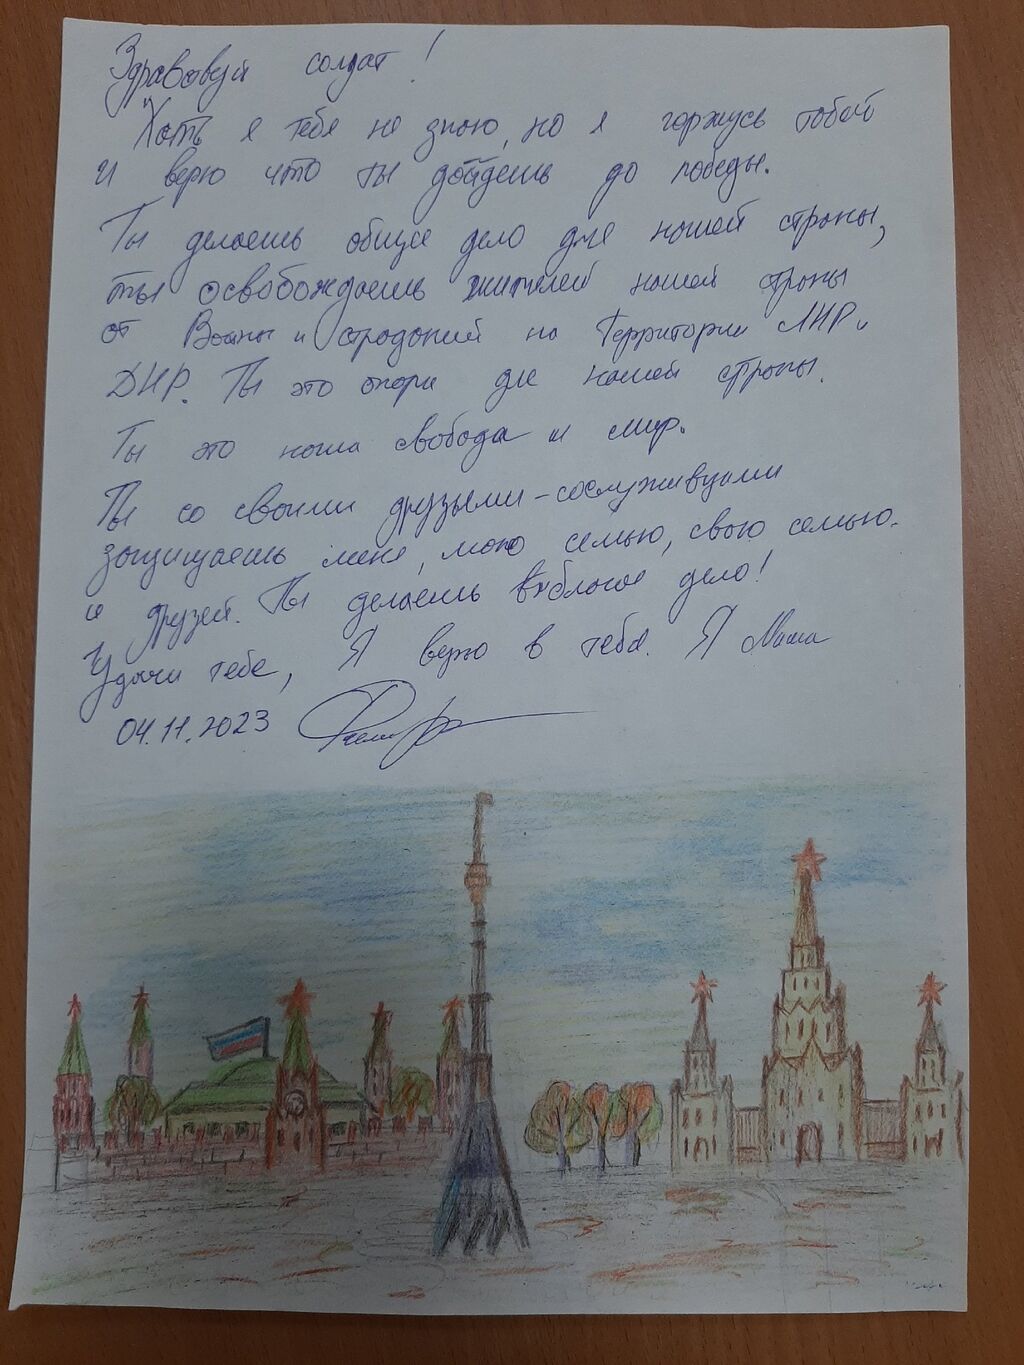 Здравствуй солдат!
Хоть я тебя не знаю, но я горжусь тобой
и верю что ты дойдешь до победы.
Ты делаешь общее дело для нашей страны,
ты освобождаешь жителей нашей страны
от Войны и страданий на Территории ЛНР и
ДНР. Ты это опора для нашей страны.
Ты это наша свобода и мир.
Ты со своими друзьями-сослуживцами
защищаешь меня, мою семью, свою семью
и друзей. Ты делаешь дело!
Удачи тебе, Я верю в тебя. Я Маша
04.11.2023